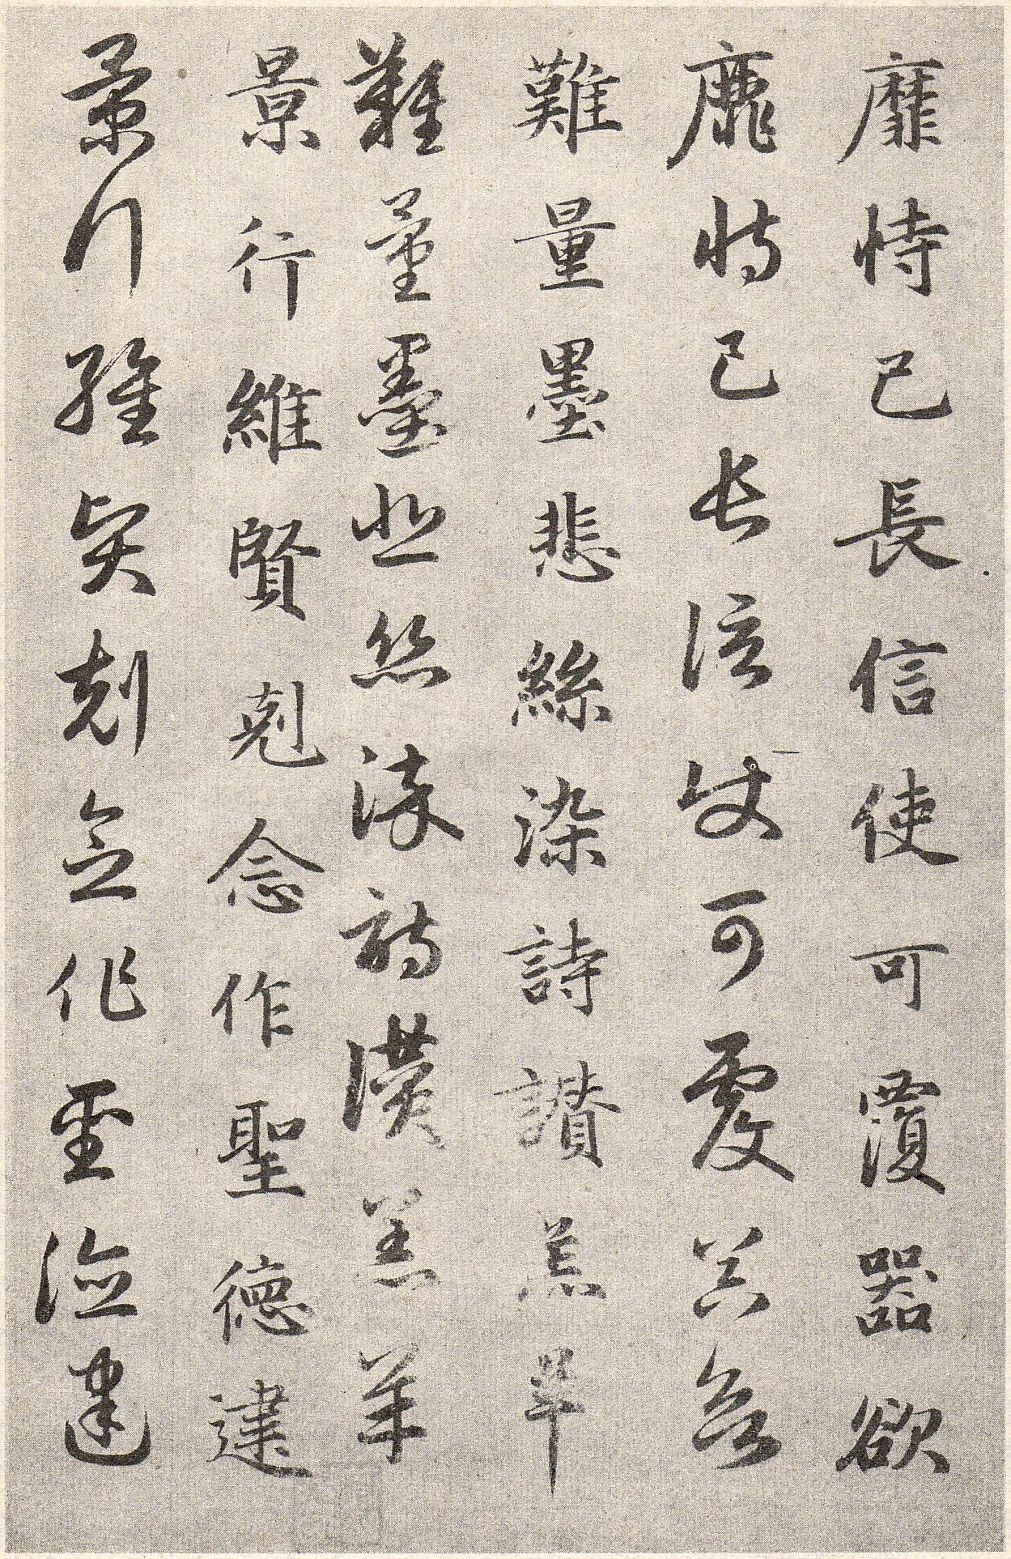 靡恃己長信使可覆器欲
靡恃己長信使可覆器欲
難量墨悲絲染詩讃羔羊
難量墨悲絲染詩讃羔羊
景行維賢剋念作聖德建
景行維賢剋念作聖德建